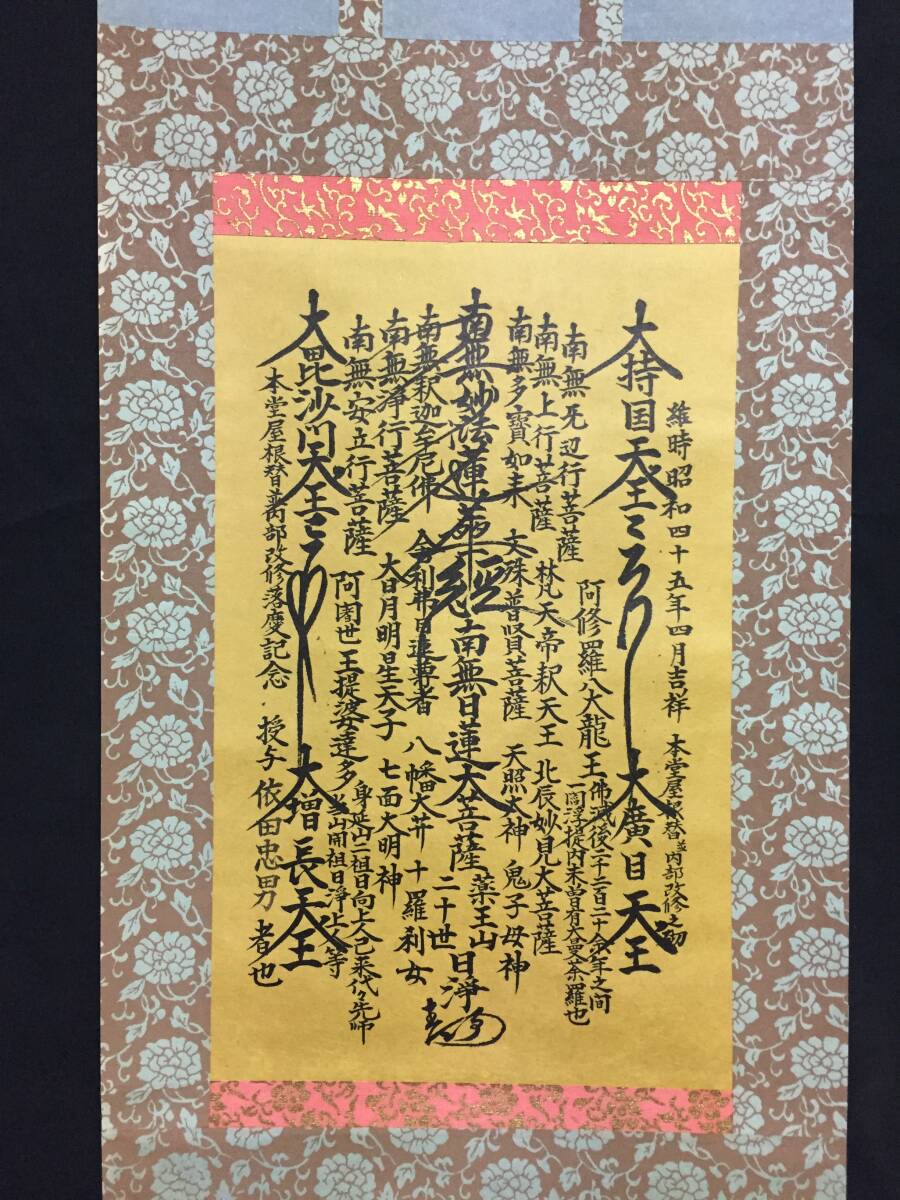 維時昭和四十五年四月吉祥 本堂屋根替並内部改修之砌
大持国天王 大廣目天王
佛滅後二千二百二十余年之間
一閻浮提内未曽有大曼荼羅也
南無无辺行菩薩 阿修羅 八大龍王
南無上行菩薩 梵天帝釈天王 北辰妙見大菩薩
南無多寳如来 文殊普賢菩薩 天照大神 鬼子母神
南無妙法蓮華経 南無日蓮大菩薩 薬王山
二十世 日淨
南無釈迦牟尼佛 舎利弗目連尊者 八幡大芥 十羅刹女
南無淨行菩薩 大日月明星天子 七面大明神
南無安立行菩薩 阿闍世王提婆達多
身延山二祖日向上人已来代々先師
当山開祖日淨上人等
大毘沙門天王 大増長天王
本堂屋根替並内部改修落慶記念 授与 依田忠男 者也